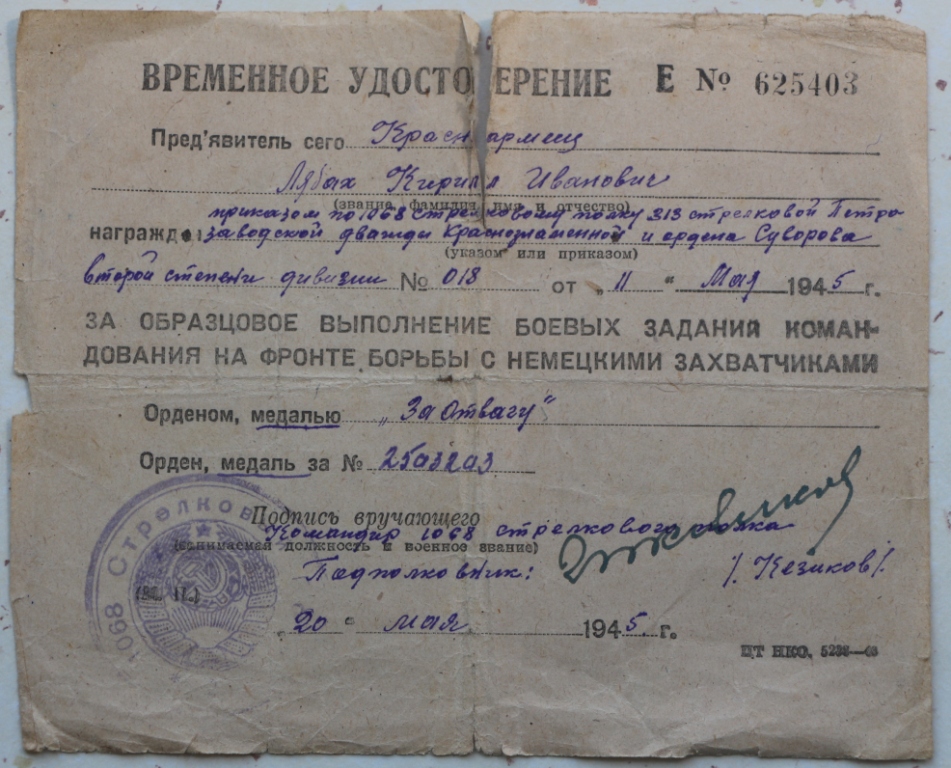 ВРЕМЕННОЕ УДОСТОВЕРЕНИЕ Е № 625403
Пред'явитель сего Красноармеец
Лябах Кирилл Иванович
(звание, фамилия, имя и отчество)
приказом по 1068 стрелковому полку 313 стрелковой Петро
награжден заводской дважды Краснознаменной и ордена Суворова
(указом или приказом)
второй степени дивизии № 018 от „11" Мая 1945 г.
ЗА ОБРАЗЦОВОЕ ВЫПОЛНЕНИЕ БОЕВЫХ ЗАДАНИЙ КОМАН-
ДОВАНИЯ НА ФРОНТЕ БОРЬБЫ С НЕМЕЦКИМИ ЗАХВАТЧИКАМИ
Орденом, медалью „За Отвагу"
Орден, медаль за №
Подпись вручающего
Командир 1068 стрелкового полка
(занимаемая должность и военное звание)
Подполковник: /. Кезиков/.
1068 Стрелков
„20" мая 1945 г.
ЦТ НКО.